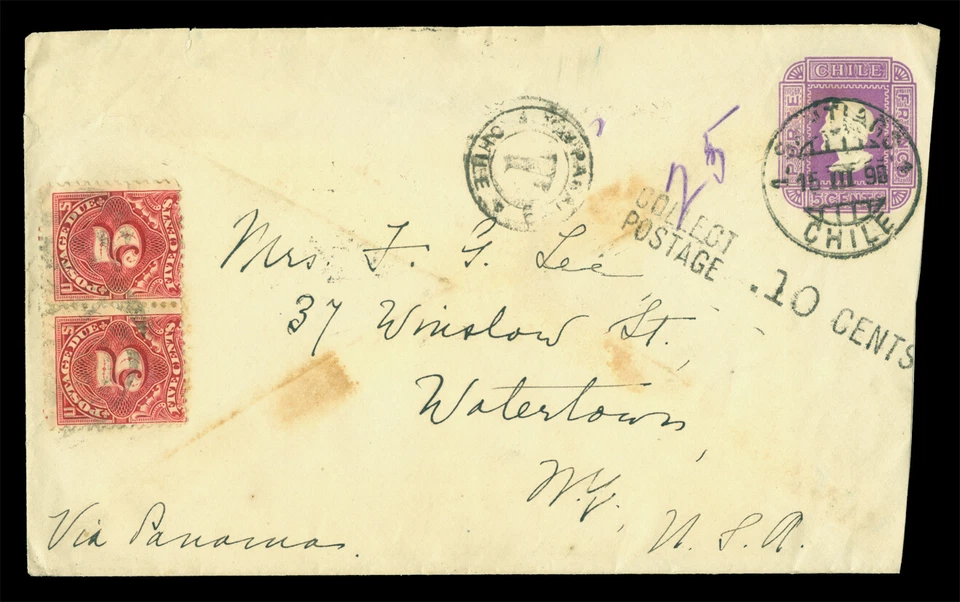 CHILE
5 CENTS
SANTIAGO
15 III 98
CHILE
CHILE
T
25
COLLECT
POSTAGE
.10 CENTS
POSTAGE DUE
UNITED STATES
5
POSTAGE DUE
UNITED STATES
5
Mrs F. G. Lee
37 Winslow St.,
Watertown,
N.Y.
U. S. A.
Via Panama.